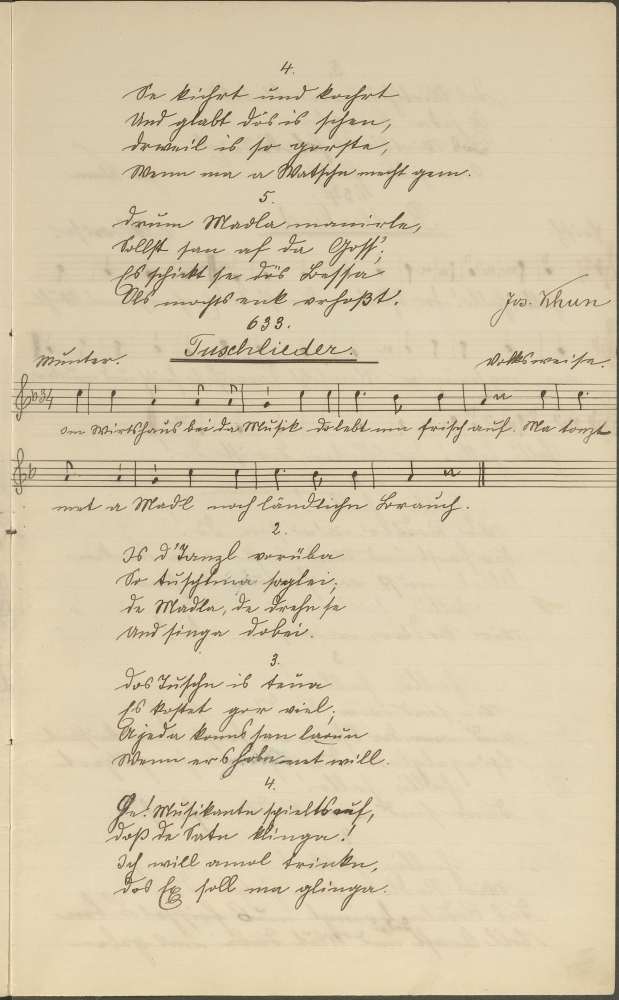 4.
Se kichrt und kochrt
Und glabt dös is schen,
Derweil is so garste,
Wenn ma a Watschn mecht gem.
5.
Drum Madla manirle,
Sollst san af da Goss';
Es schickt se dös bessa
Als mechts enk
Jos. Khun
633.
Tuschlieder.
Munter.
Volksweise.
Om Wirtshaus bei da Musik do lebt ma frisch auf. Ma tanzt
met a Madl noch ländlichn Brauch.
2.
Is d'Tanzl vorüba
So tuschtma soglei;
de Madla, de drehn se
Und singa dobei.
3.
Das Tuschn is teua
Es kostet gor viel;
A jeda konns san lassn
Wenn ers hobn net will.
4.
He! Musikantn spielts auf,
daß de Satn klinga!
Ich will amol trinkn,
Dos soll ma glinga.